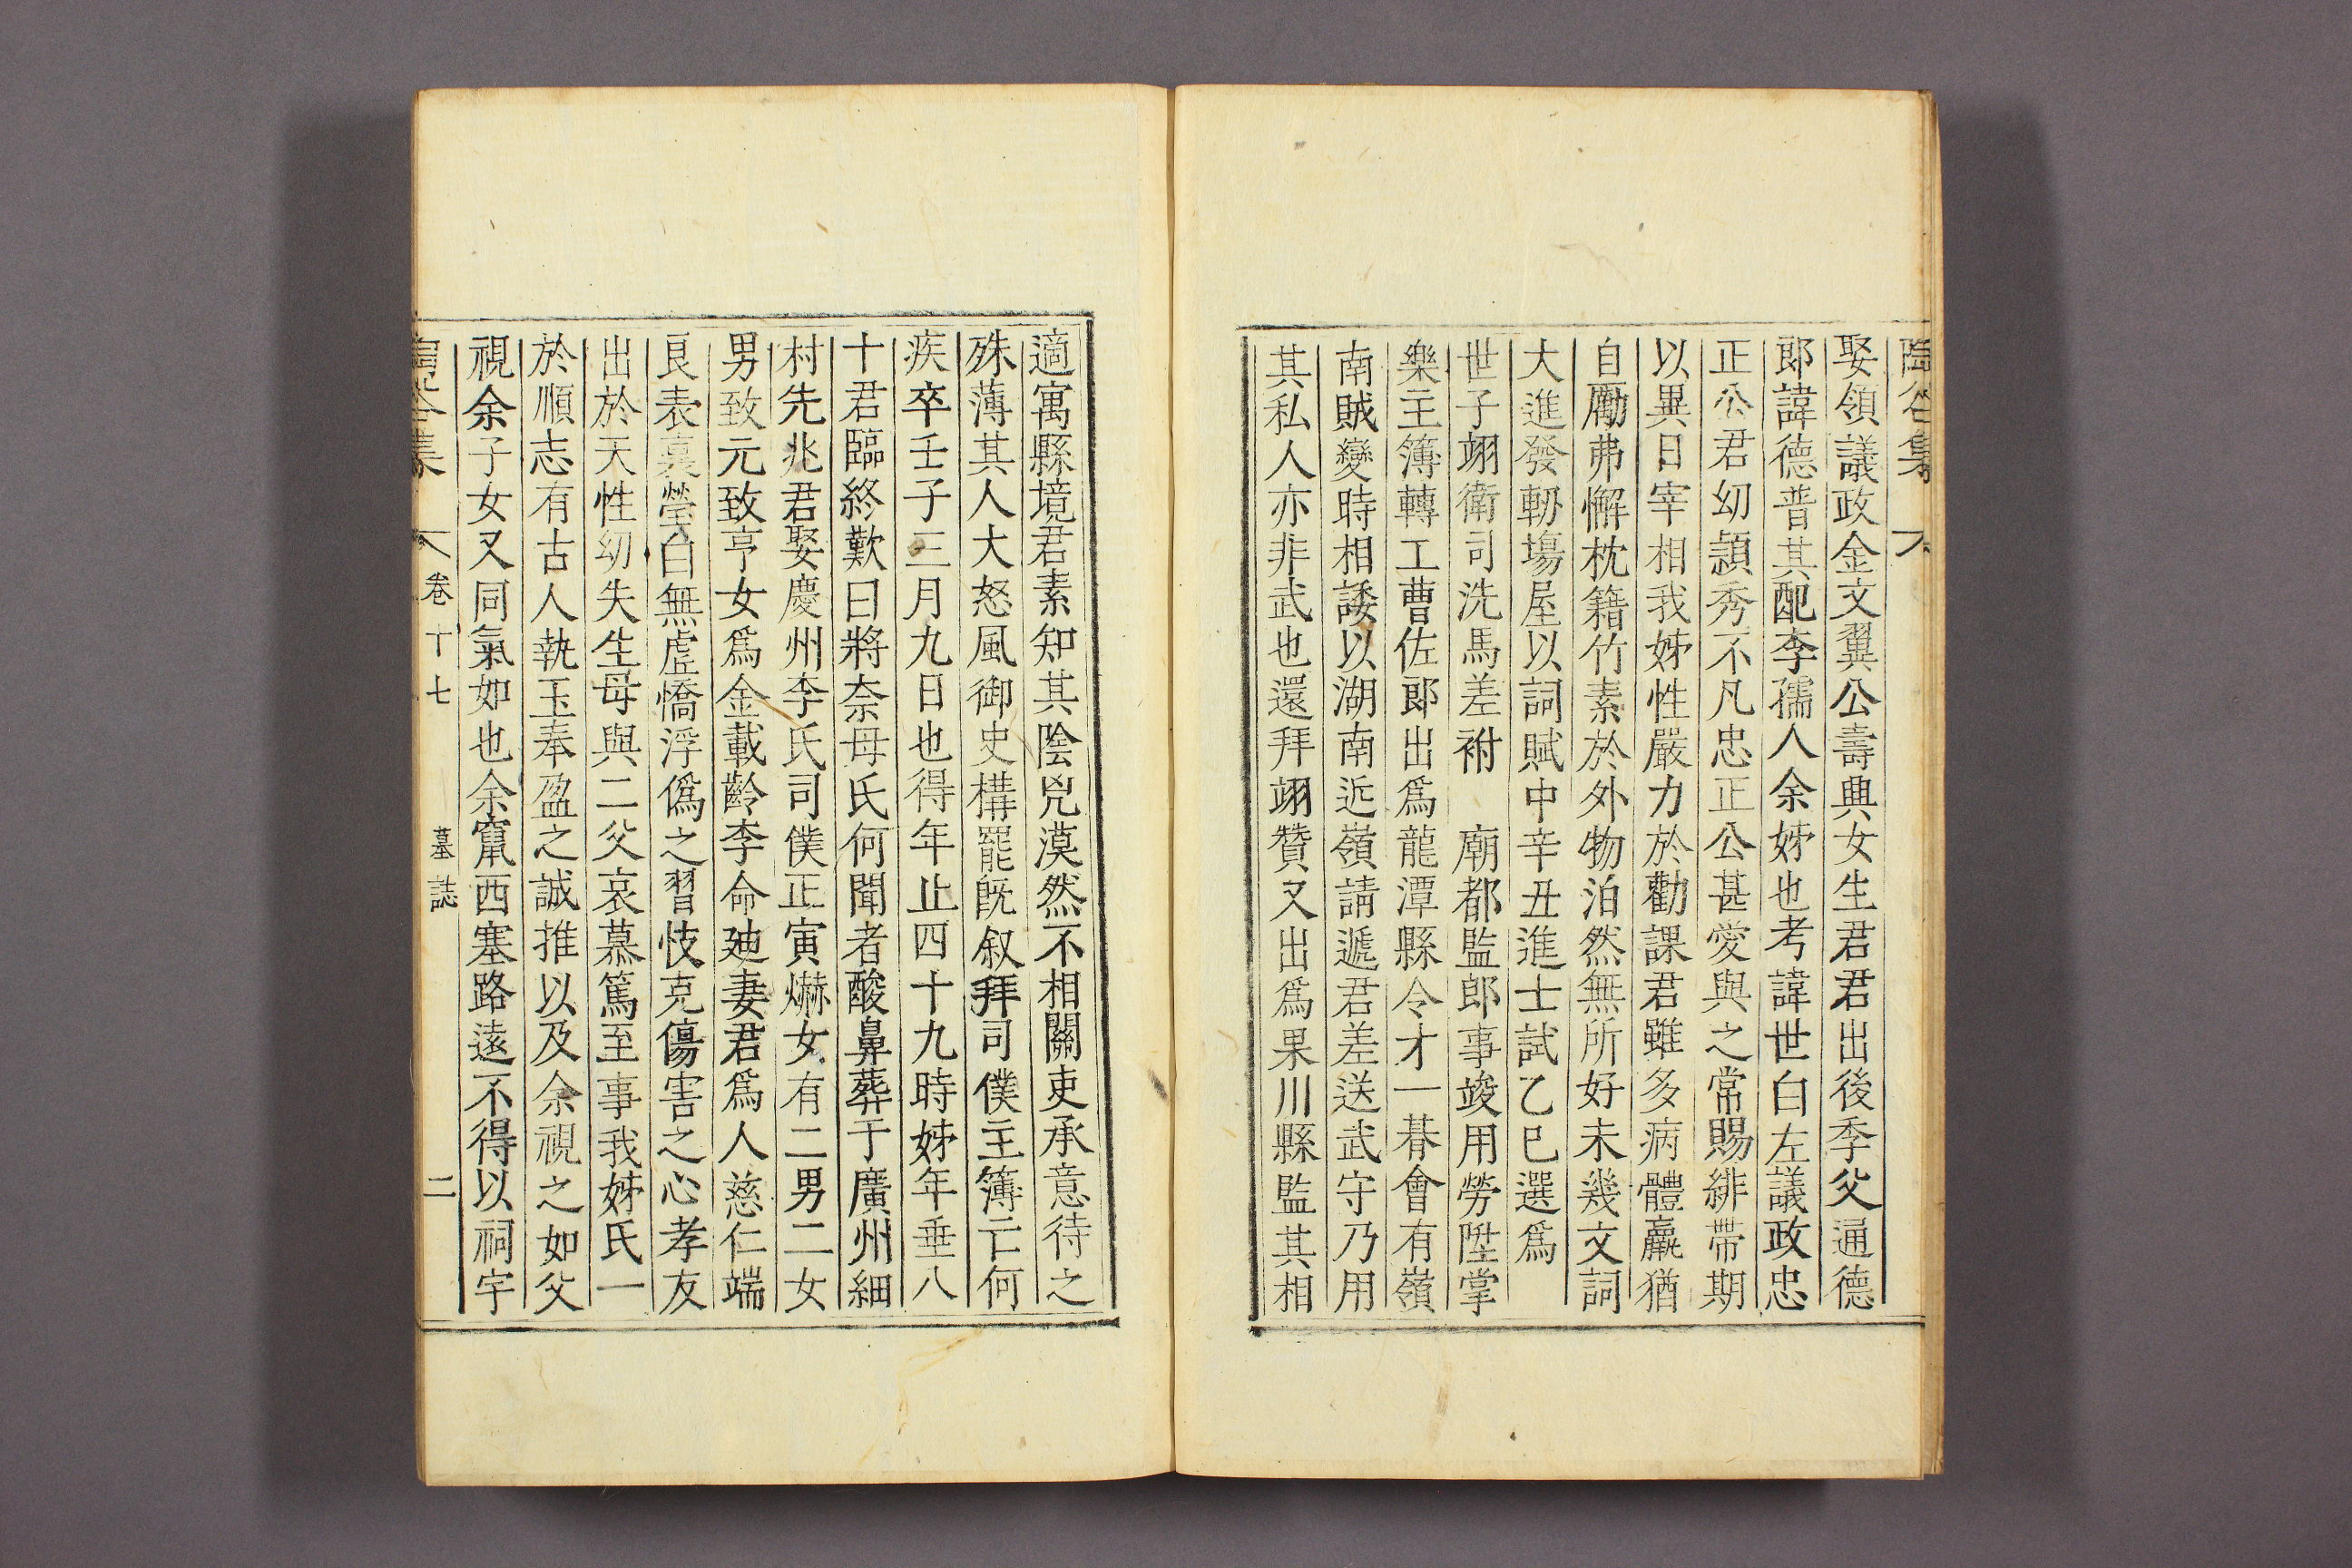 娶領議政金文翼公壽興女生君君出後季父通德
郎諱德普其配李孺人余姊也考諱世白左議政忠
正公君幼頴秀不凡忠正公甚愛與之常賜緋帶期
以異日宰相我姊性嚴力於勸課君雖多病體羸猶
自勵弗懈枕籍竹素於外物泊然無所好未幾文詞
大進發軔塲屋以詞賦中辛丑進士試乙巳選爲
世子翊衛司洗馬差祔 廟都監郎事竣用勞陞掌
樂主簿轉工曹佐郎出爲龍潭縣令才一朞會有嶺
南賊變時相諉以湖南近嶺請遞君差送武守乃用
其私人亦非武也還拜翊贊又出爲果川縣監其相
適寓縣境君素知其陰兇漠然不相關吏承意待之
殊薄其人大怒風御史構罷旣叙拜司僕主簿亡何
疾卒壬子三月九日也得年止四十九時姊年垂八
十君臨終歎曰將奈母氏何聞者酸鼻葬于廣州細
村先兆君娶慶州李氏司僕正寅爀女有二男二女
男致元致亨女爲金載齡李命廸妻君爲人慈仁端
良表裏瑩白無虛憍浮僞之習忮克傷害之心孝友
出於天性幼失生母與二父哀慕篤至事我姊氏一
於順志有古人執玉奉盈之誠推以及余視之如父
視余子女又同氣如也余竄西塞路遠不得以祠宇
卷十七 墓誌 二